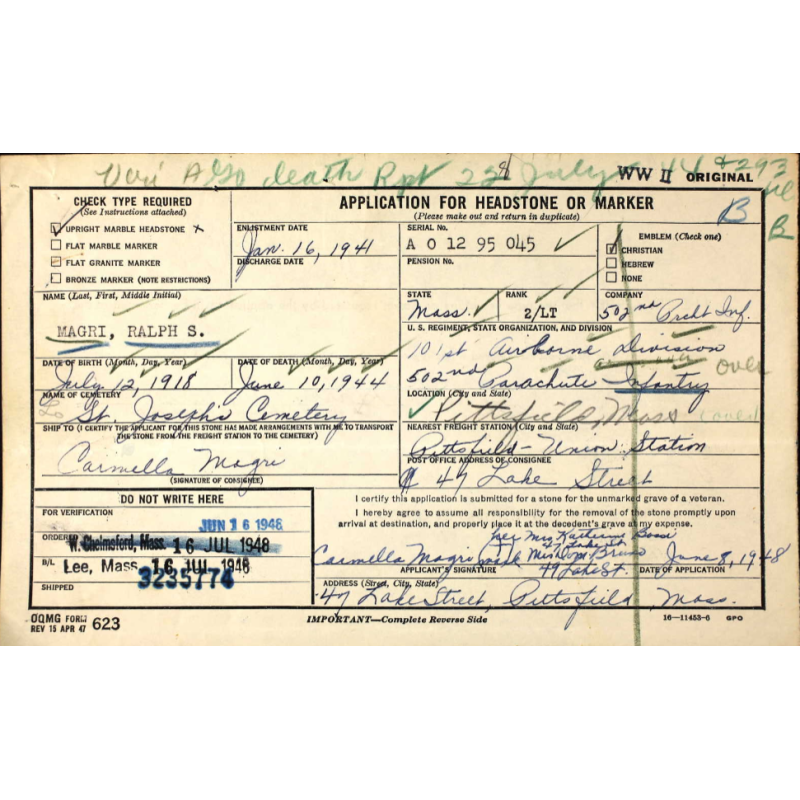 Veri AGO death Rpt 22 July 44 & 293
WW II ORIGINAL
B
B
CHECK TYPE REQUIRED
(See Instructions attached)
UPRIGHT MARBLE HEADSTONE x
FLAT MARBLE MARKER
FLAT GRANITE MARKER
BRONZE MARKER (NOTE RESTRICTIONS)
APPLICATION FOR HEADSTONE OR MARKER
(Please make out and return in duplicate)
ENLISTMENT DATE
Jan. 16, 1941
DISCHARGE DATE
SERIAL No.
A 0 12 95 045
PENSION No.
EMBLEM (Check one)
CHRISTIAN
HEBREW
NONE
NAME (Last, First, Middle Initial)
MAGRI, RALPH S.
STATE
Mass.
RANK
2/LT
COMPANY
502nd Prcht Inf.
U. S. REGIMENT, STATE ORGANIZATION, AND DIVISION
101st Airborne Division
502nd Parachute Infantry
over
DATE OF BIRTH (Month, Day, Year)
July 12, 1918
DATE OF DEATH (Month, Day, Year)
June 10, 1944
NAME OF CEMETERY
St. Joseph's Cemetery
LOCATION (City and State)
Pittsfield, Mass
SHIP TO (I CERTIFY THE APPLICANT FOR THIS STONE HAS MADE ARRANGEMENTS WITH ME TO TRANSPORT
THE STONE FROM THE FREIGHT STATION TO THE CEMETERY)
Carmella Magri
(SIGNATURE OF CONSIGNEE)
NEAREST FREIGHT STATION (City and State)
Pittsfield - Union Station
POST OFFICE ADDRESS OF CONSIGNEE
47 Lake Street
DO NOT WRITE HERE
FOR VERIFICATION
JUN 16 1948
ORDERED
W. Chelmsford, Mass. 16 JUL 1948
B/L
Lee, Mass. 16 JUL 1948
3235774
SHIPPED
I certify this application is submitted for a stone for the unmarked grave of a veteran.
I hereby agree to assume all responsibility for the removal of the stone promptly upon
arrival at destination, and properly place it at the decedent's grave at my expense.
per Mrs Katherine
Carmella Magri Mrs Bruno June 8, 1948
47 Lake St.
APPLICANT'S SIGNATURE
DATE OF APPLICATION
ADDRESS (Street, City, State)
47 Lake Street, Pittsfield, Mass.
OQMG FORM
REV 15 APR 47 623
IMPORTANT—Complete Reverse Side
16—11453-6 GPO